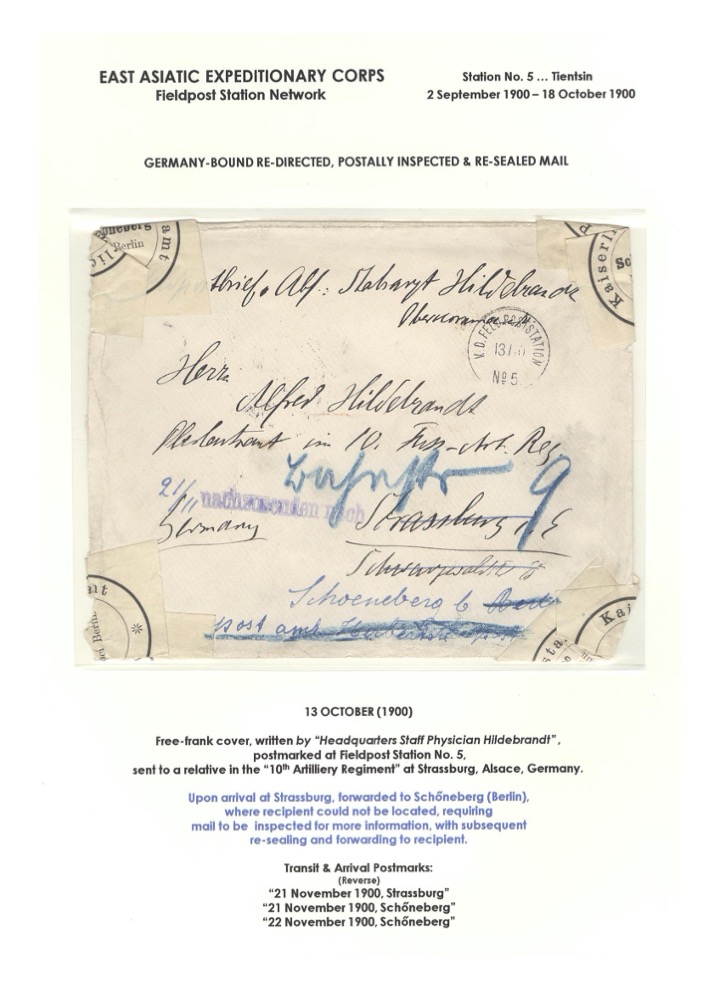 EAST ASIATIC EXPEDITIONARY CORPS
Fieldpost Station Network
Station No. 5 ... Tientsin
2 September 1900 – 18 October 1900
GERMANY-BOUND RE-DIRECTED, POSTALLY INSPECTED & RE-SEALED MAIL
Berlin
amt
Kaiserl
Sc
Abs: Stabsarzt Hildebrandt
K.D. FELDPOSTSTATION
13/10
No 5
Herrn
Alfred Hildebrandt
Oberleutnant im 10. Fuss-Art. Reg.
Bahnstr 9
21/11
nachzusenden nach
Germany
Strassburg i. E
Schwarzwaldstr
Schoeneberg b. Berlin
post amt
mt
Berlin
*
Kai
sta
13 OCTOBER (1900)
Free-frank cover, written by “Headquarters Staff Physician Hildebrandt”,
postmarked at Fieldpost Station No. 5,
sent to a relative in the “10th Artilliery Regiment” at Strassburg, Alsace, Germany.
Upon arrival at Strassburg, forwarded to Schőneberg (Berlin),
where recipient could not be located, requiring
mail to be inspected for more information, with subsequent
re-sealing and forwarding to recipient.
Transit & Arrival Postmarks:
(Reverse)
“21 November 1900, Strassburg”
“21 November 1900, Schőneberg”
“22 November 1900, Schőneberg”